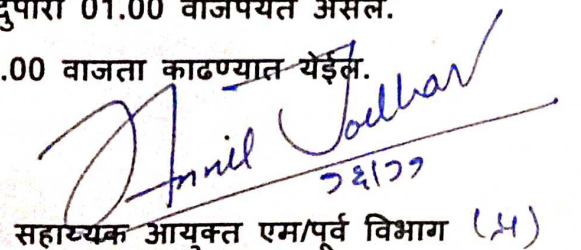 दुपारी 01.00 वाजेपर्यंत असेल.
.00 वाजता काढण्यात येईल.
Annil Jadhav
२६/११
सहाय्यक आयुक्त एम/पूर्व विभाग (प्र)